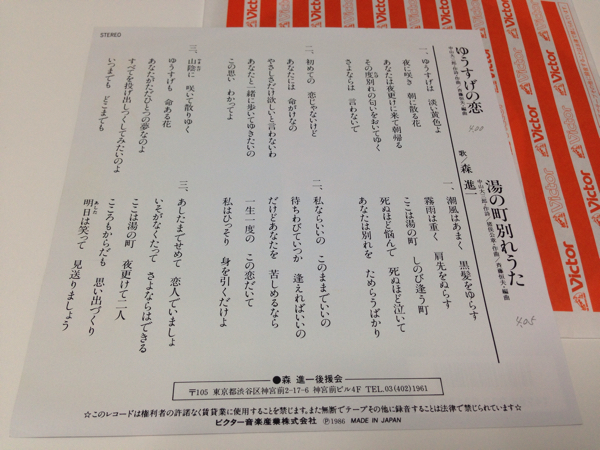 STEREO
ゆうすげの恋
4.00
歌/森 進一
一、ゆうすげは 淡い黄色よ
夜に咲き 朝に散る花
あなたは夜更けに来て朝帰る
その度別れの匂いをおいてゆく
さよならは 言わないで
二、初めての 恋じゃないけど
あなたには 命がけなの
やさしさだけ欲しいと言わないわ
あなたと一緒に歩いてゆきたいの
この思い わかってよ
三、山陰に 咲いて散りゆく
ゆうすげも 命ある花
あなたがただひとつの夢なのよ
すべてを投げ出しつくしてみたいのよ
いつまでも どこまでも
湯の町別れうた
4.05
一、潮風はあまく 黒髪をゆらす
霧雨は重く 肩先をぬらす
ここは湯の町 しのび逢う町
死ぬほど悩んで 死ぬほど泣いて
あなたは別れを ためらうばかり
二、私ならいいの このままでいいの
待ちわびていつか 逢えればいいの
だけどあなたを 苦しめるなら
一生一度の この恋だいて
私はひっそり 身を引くだけよ
三、あしたまでせめて 恋人でいましょ
いそがなくたって さよならはできる
ここは湯の町 夜更けて二人
こころもからだも 思い出づくり
明日は笑って 見送りましょう
あした
●森 進一後援会
〒105 東京都渋谷区神宮前2-17-6 神宮前ビル4F TEL.03(402)1961
☆このレコードは権利者の許諾なく賃貸業に使用することを禁じます。また無断でテープその他に録音することは法律で禁じられています☆
ビクター音楽産業株式会社 Ⓟ1986 MADE IN JAPAN
Victor
Victor
Victor
Victor
Victor